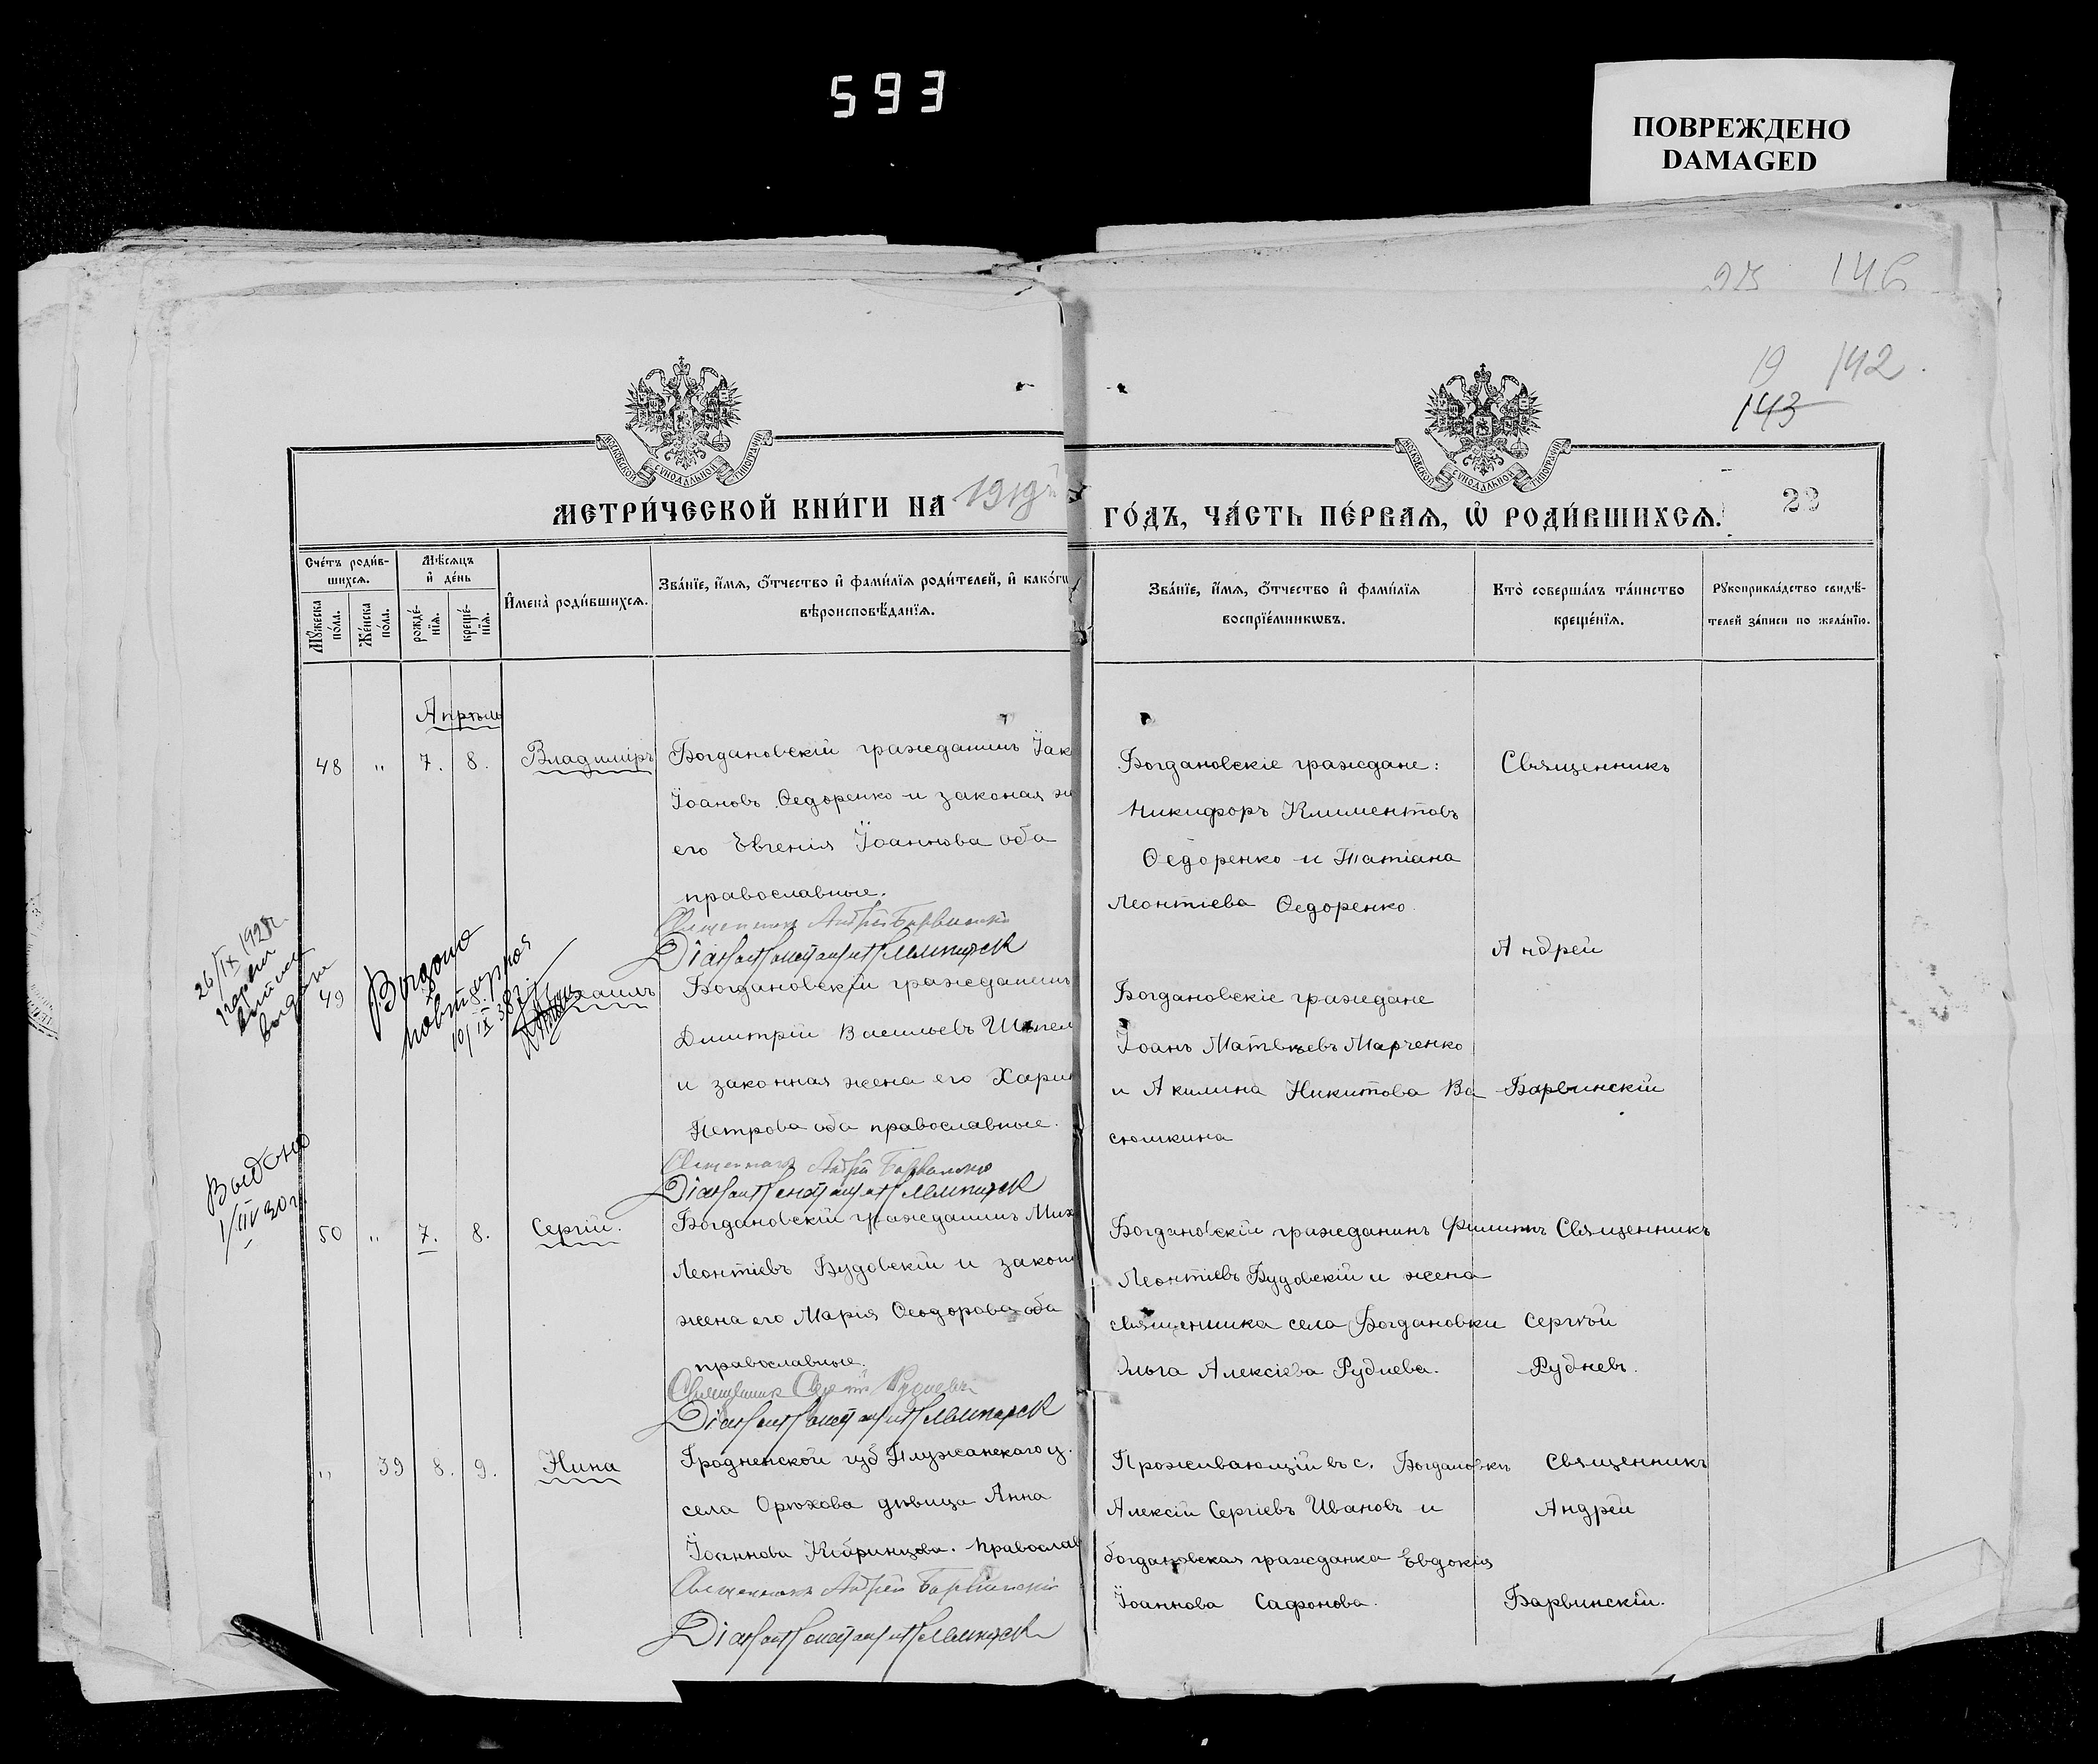 593
ПОВРЕЖДЕНО
DAMAGED
146
19 142.
143
МОСКОВСКОЙ СѴНОДАЛЬНОЙ ТИПОГРАФІИ
МОСКОВСКОЙ СѴНОДАЛЬНОЙ ТИПОГРАФІИ
МЕТРИ́ЧЕСКОЙ КНИ́ГИ НА 1919й
ГО́ДЪ, ЧА́СТЬ ПЕ́РВАѦ, Ѡ РОДИ́ВШИХСѦ.
29
Сче́тъ роди́в-
шихсѧ.
Мꙋ́жеска
по́ла.
Же́нска
по́ла.
Мѣ́сѧцъ
и҆ де́нь
рожде́-
нїѧ.
креще́-
нїѧ.
И҆мена̀ роди́вшихсѧ.
Зва́нїе, и҆́мѧ, ѻ҆́тчество и҆ фами́лїѧ роди́телей, и҆ како́гѡ
вѣроисповѣ́данїѧ.
Зва́нїе, и҆́мѧ, ѻ҆́тчество и҆ фами́лїѧ
воспрїе́мникѡвъ.
Кто̀ соверша́лъ та́инство
креще́нїѧ.
Рꙋкоприкла́дство свидѣ́-
телей за́писи по жела́нїю.
Апрѣль
48 " 7. 8. Владиміръ
Богдановскій гражданинъ Іак
Іоановъ Ѳедоренко и законая ж
его Евгенія Іоаннова оба
православные.
Священникъ Андрей Барвинскій
Богдановскіе граждане:
Никифоръ Климентовъ
Ѳедоренко и Татіана
Леонтіева Ѳедоренко.
Священникъ
Андрей
Барвинскій
26/IX 1928г.
49
Выдано
повторная
10/IX 38г.
Богдановскій гражданинъ
Дмитрій Васильевъ
и законная жена его Хари
Петрова оба православные.
Священникъ Андрей Барвинскій
Богдановскіе граждане
Іоанъ Матвѣевъ Марченко
и Акилина Никитова Ва
сюшкина
Выдано
50 " 7. 8. Сергій.
Богдановскій гражданинъ Мих
Леонтіевъ Будовскій и закон
жена его Марія Ѳеодорова оба
православные.
Священникъ Сергій Рудневъ
Богдановскій гражданинъ Филиппъ
Леонтіевъ Будовскій и жена
священника села Богдановки
Ольга Алексіева Руднева.
Священникъ
Сергѣй
Рудневъ.
" 39 8. 9. Нина
Гродненской губ Пружанскаго у.
села Орѣхова дѣвица Анна
Іоаннова Кобринцева. Православ
Священникъ Андрей Барвинскій
Проживающій въ с. Богдановкѣ
Алексій Сергіевъ Ивановъ и
богдановская гражданка Евдокія
Іоаннова Сафонова.
Священникъ
Андрей
Барвинскій.